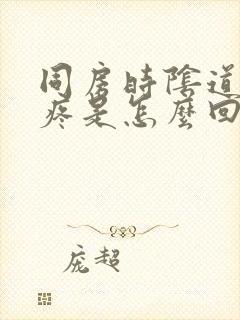 同房時陰道
疼是怎麼回
龐超